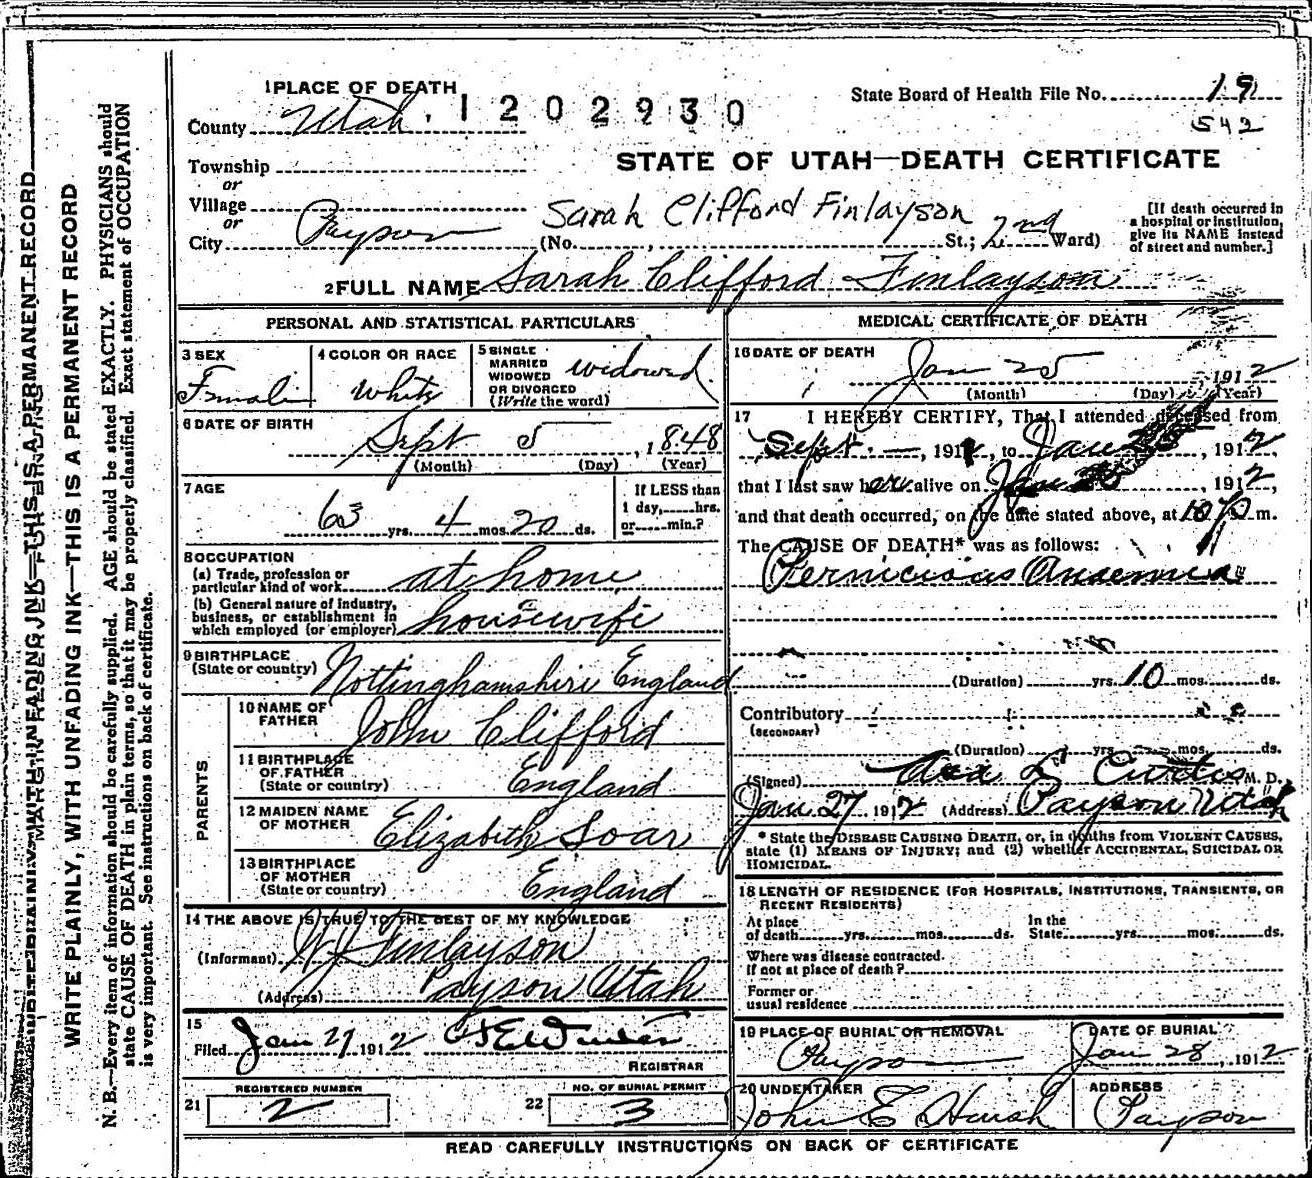 1 PLACE OF DEATH
County Utah
1202930
State Board of Health File No. 19
542
STATE OF UTAH—DEATH CERTIFICATE
Township
or
Village
or
City Payson
Sarah Clifford Finlayson
(No. , St.; 2nd Ward)
[If death occurred in
a hospital or institution,
give its NAME instead
of street and number.]
2 FULL NAME Sarah Clifford Finlayson
PERSONAL AND STATISTICAL PARTICULARS
3 SEX
Female
4 COLOR OR RACE
White
5 SINGLE
MARRIED
WIDOWED
OR DIVORCED
(Write the word)
widowed.
6 DATE OF BIRTH
Sept 5, 1848
(Month) (Day) (Year)
7 AGE
63 yrs. 4 mos. 20 ds.
If LESS than
1 day, hrs.
or min.?
8 OCCUPATION
(a) Trade, profession or
particular kind of work at home
(b) General nature of industry,
business, or establishment in
which employed (or employer) housewife
9 BIRTHPLACE
(State or country) Nottinghamshire England
PARENTS
10 NAME OF
FATHER John Clifford
11 BIRTHPLACE
OF FATHER
(State or country) England
12 MAIDEN NAME
OF MOTHER Elizabeth Soar
13 BIRTHPLACE
OF MOTHER
(State or country) England
14 THE ABOVE IS TRUE TO THE BEST OF MY KNOWLEDGE
(Informant) Finlayson
(Address) Payson Utah
15
Filed Jan 27 1912
REGISTRAR
REGISTERED NUMBER
21 2
NO. OF BURIAL PERMIT
22 3
MEDICAL CERTIFICATE OF DEATH
16 DATE OF DEATH
Jan 25 1912
(Month) (Day) (Year)
17 I HEREBY CERTIFY, That I attended deceased from
Sept. —, 191 , to Jan , 1912,
that I last saw her alive on Jan , 1912,
and that death occurred, on the date stated above, at m.
The CAUSE OF DEATH* was as follows:
Pernicious Anaemia
(Duration) yrs. 10 mos. ds.
Contributory
(SECONDARY)
(Duration) yrs. mos. ds.
(Signed) Asa L Curtis M. D.
Jan 27 1912 (Address) Payson Utah
* State the DISEASE CAUSING DEATH, or, in deaths from VIOLENT CAUSES,
state (1) MEANS OF INJURY; and (2) whether ACCIDENTAL, SUICIDAL OR
HOMICIDAL.
18 LENGTH OF RESIDENCE (FOR HOSPITALS, INSTITUTIONS, TRANSIENTS, OR
RECENT RESIDENTS)
At place
of death yrs. mos. ds.
In the
State yrs. mos. ds.
Where was disease contracted.
If not at place of death?
Former or
usual residence
19 PLACE OF BURIAL OR REMOVAL
Payson
DATE OF BURIAL
Jan 28, 1912
20 UNDERTAKER
John E
ADDRESS
Payson
READ CAREFULLY INSTRUCTIONS ON BACK OF CERTIFICATE
WRITE PLAINLY, WITH UNFADING INK—THIS IS A PERMANENT RECORD
N. B.—Every item of information should be carefully supplied. AGE should be stated EXACTLY. PHYSICIANS should
state CAUSE OF DEATH in plain terms, so that it may be properly classified. Exact statement of OCCUPATION
is very important. See instructions on back of certificate.